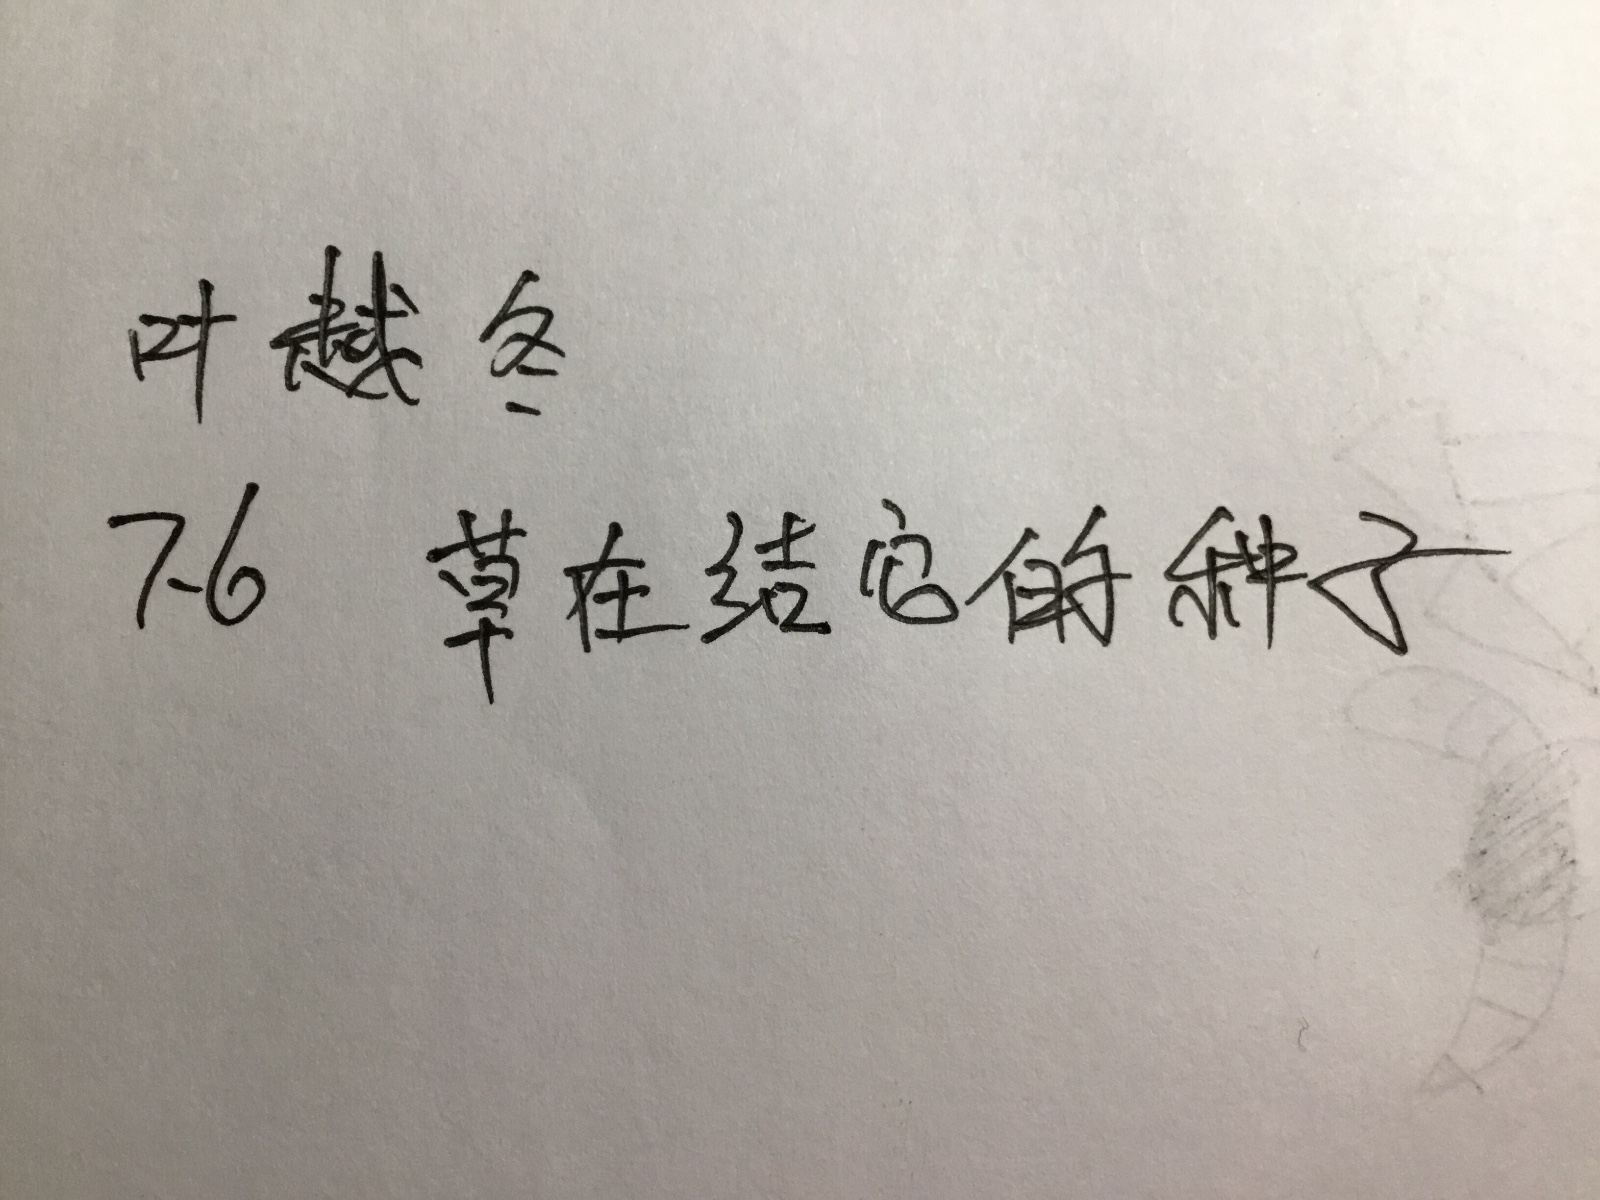 叶越冬
7-6 草在结它的种子